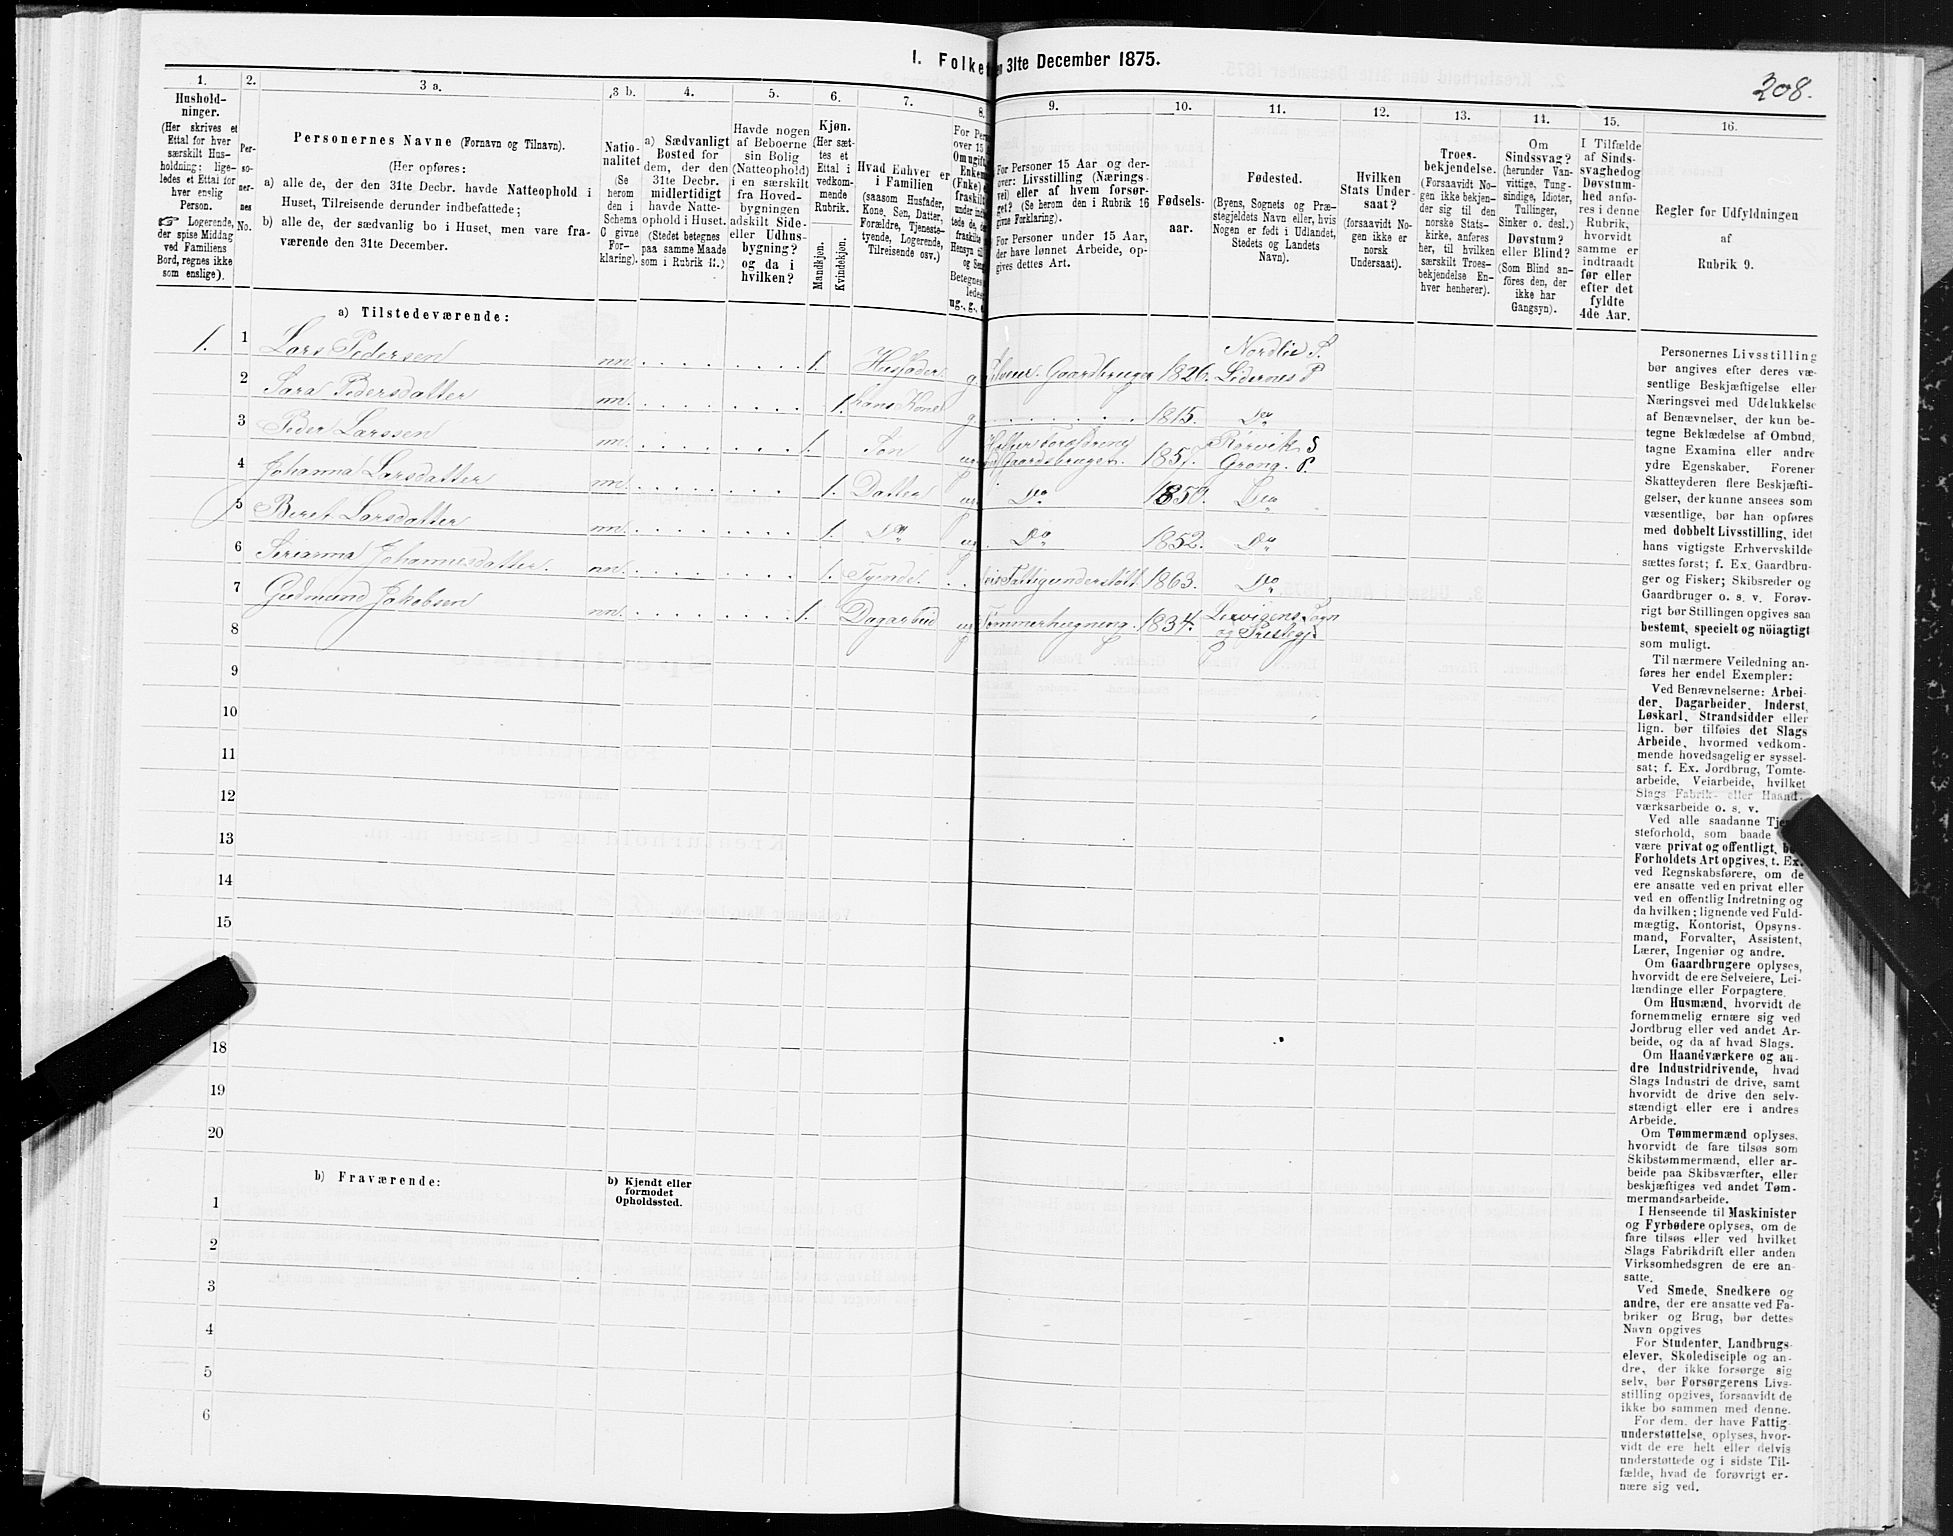 I. Folke en 31te December 1875.
308.
1.
2.
3 a.
3 b.
4.
5.
6.
7.
8.
9.
10.
11.
12.
13.
14.
15.
16.
Hushold-
ninger.
(Her skrives et
Ettal for hver
særskilt Hus-
holdning; lige-
ledes et Ettal for
hver enslig
Person.
☞ Logerende,
der spise Middag
ved Familiens
Bord, regnes ikke
som enslige).
Per-
so-
ner-
nes
No.
Personernes Navne (Fornavn og Tilnavn).
(Her opføres:
a) alle de, der den 31te Decbr. havde Natteophold i
Huset, Tilreisende derunder indbefattede;
b) alle de, der sædvanlig bo i Huset, men vare fra-
værende den 31te December.
Natio-
nalitet
(Se
herom
den i
Schema
C givne
For-
klaring).
a) Sædvanligt
Bosted for
dem, der den
31te Decbr.
midlertidigt
havde Natte-
ophold i Huset.
(Stedet betegnes
paa samme Maade
som i Rubrik 11.)
Havde nogen
af Beboerne
sin Bolig
(Natteophold)
i en særskilt
fra Hoved-
bygningen
adskilt Side-
eller Udhus-
bygning?
og da i
hvilken?
Kjøn.
(Her sæt-
tes et
Ettal i
vedkom-
mende
Rubrik.
Mandkjøn.
Kvindekjøn.
Hvad Enhver er
i Familien
(saasom Husfader,
Kone, Søn, Datter,
Forældre, Tjeneste-
tyende, Logerende,
Tilreisende osv.)
For Pers
over 15
Omugift
Enkem
(Enke)
fraskilt
under indt
tede de,
fraskilte
Hensyn til
og Sen
Betegnes
ledes
ug., g.,
For Personer 15 Aar og der-
over: Livsstilling (Nærings-
vei) eller af hvem forsør-
get? (Se herom den i Rubrik 16
givne Forklaring).
For Personer under 15 Aar,
der have lønnet Arbeide, op-
gives dettes Art.
Fødsels-
aar.
Fødested.
(Byens, Sognets og Præ-
stegjeldets Navn eller, hvis
Nogen er født i Udlandet,
Stedets og Landets
Navn).
Hvilken
Stats Under-
saat?
(forsaavidt No-
gen ikke er
norsk
Undersaat).
Troes-
bekjendelse.
(Forsaavidt No-
gen ikke bekjen-
der sig til den
norske Stats-
kirke, anføres
her, til hvilken
særskilt Troes-
bekjendelse En-
hver henhører).
Om
Sindssvag?
(herunder Van-
vittige, Tung-
sindige, Idioter,
Tullinger,
Sinker o. desl.)
Døvstum?
eller Blind?
(Som Blind an-
føres den, der
ikke har
Gangsyn).
I Tilfælde
af Sinds-
svaghed og
Døvstum-
hed anfø-
res i denne
Rubrik,
hvorvidt
samme er
indtraadt
før eller
efter det
fyldte
4de Aar.
Regler for Udfyldningen
af
Rubrik 9.
a) Tilstedeværende:
1. 1 Lars Pedersen nn. 1. Husfader g. Gaardbruger 1826. Nordlie S.
Lidernes P
2 Sara Pedersdatter nn. 1. hans Kone g 1815. Do
3 Peder Larssen nn. 1. Søn ug Gaardsbrugen. 1857. Rørvik S
Grong. P.
4 Johanna Larsdatter nn. 1. Datter ug Do 1850. Do
5 Beret Larsdatter nn. 1. Do ug. Do 1852. Do
6 Serianna Johannesdatter. nn. 1. Tyende Fattigunderstøtt. 1863. Do
7 Gudmund Jakobsen nn. 1. Dagarbeid ug Tømmerhugning. 1834. Lexvigens Sogn
og Prestegj.
8
9
10
11
12
13
14
15
18
19
20
b) Fraværende:
b) Kjendt eller
formodet
Opholdssted.
1
2
3
4
5
6
Personernes Livsstilling
bør angives efter deres væ-
sentlige Beskjæftigelse eller
Næringsvei med Udelukkelse
af Benævnelser, der kun be-
tegne Beklædelse af Ombud,
tagne Examina eller andre
ydre Egenskaber. Forener
Skatteyderen flere Beskjæfti-
gelser, der kunne ansees som
væsentlige, bør han opføres
med dobbelt Livsstilling, idet
hans vigtigste Erhvervskilde
sættes først; f. Ex. Gaardbru-
ger og Fisker; Skibsreder og
Gaardbruger o. s. v. Forøv-
rigt bør Stillingen opgives saa
bestemt, specielt og nöiagtigt
som muligt.
Til nærmere Veiledning an-
føres her endel Exempler:
Ved Benævnelserne: Arbei-
der, Dagarbeider, Inderst,
Løskarl, Strandsidder eller
lign. bør tilføies det Slags
Arbeide, hvormed vedkom-
mende hovedsagelig er syssel-
sat; f. Ex. Jordbrug, Tomte-
arbeide, Veiarbeide, hvilket
Slags Fabrik- eller Haand-
værksarbeide o. s. v.
Ved alle saadanne Tje
steforhold, som baade
være privat og offentligt, b
Forholdets Art opgives, t. Ex.
ved Regnskabsførere, om de
ere ansatte ved en privat eller
ved en offentlig Indretning og
da hvilken; lignende ved Fuld-
mægtig, Kontorist, Opsyns-
mand, Forvalter, Assistent,
Lærer, Ingeniør og andre.
Om Gaardbrugere oplyses,
hvorvidt de ere Selveiere, Lei-
lændinge eller Forpagtere.
Om Husmænd, hvorvidt de
fornemmelig ernære sig ved
Jordbrug eller ved andet Ar-
beide, og da af hvad Slags.
Om Haandværkere og an-
dre Industridrivende, hvad
Slags Industri de drive, samt
hvorvidt de drive den selv-
stændigt eller ere i andres
Arbeide.
Om Tømmermænd oplyses,
hvorvidt de fare tilsøs som
Skibstømmermænd, eller ar-
beide paa Skibsværfter, eller
beskjæftiges ved andet Tøm-
mermandsarbeide.
I Henseende til Maskinister
og Fyrbødere oplyses, om de
fare tilsøs eller ved hvilket
Slags Fabrikdrift eller anden
Virksomhedsgren de ere an-
satte.
Ved Smede, Snedkere og
andre, der ere ansatte ved Fa-
briker og Brug, bør dettes
Navn opgives
For Studenter, Landbrugs-
elever, Skoledisciple og an-
dre, der ikke forsørge sig
selv, bør Forsørgerens Livs-
stilling opgives, forsaavidt de
ikke bo sammen med denne.
For dem, der have Fattig-
understøttelse, oplyses, hvor-
vidt de ere helt eller delvis
understøttede og i sidste Til-
fælde, hvad de forøvrigt er-
nære sig ved.